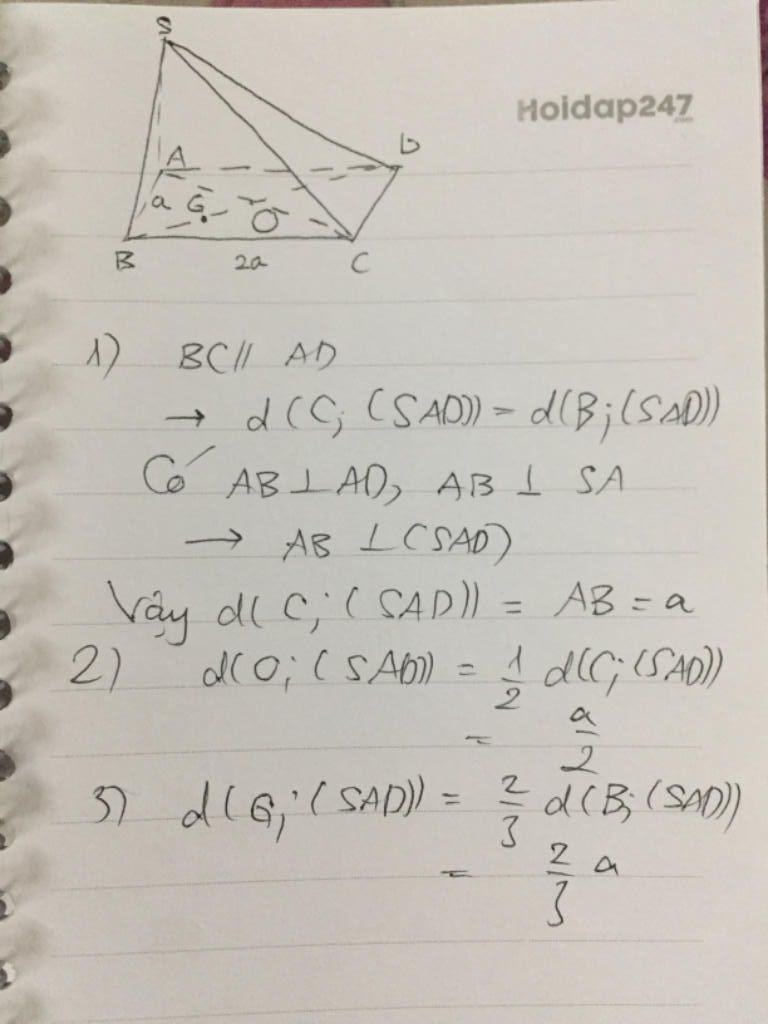 S
Hoidap247
.com
A
D
a G
O
B
2a
C
1) BC // AD
→ d(C; (SAD)) = d(B; (SAD))
Có AB ⊥ AD, AB ⊥ SA
→ AB ⊥ (SAD)
Vậy d(C; (SAD)) = AB = a
2) d(O; (SAD)) = 1/2 d(C; (SAD))
= a/2
3) d(G; (SAD)) = 2/3 d(B; (SAD))
= 2/3 a